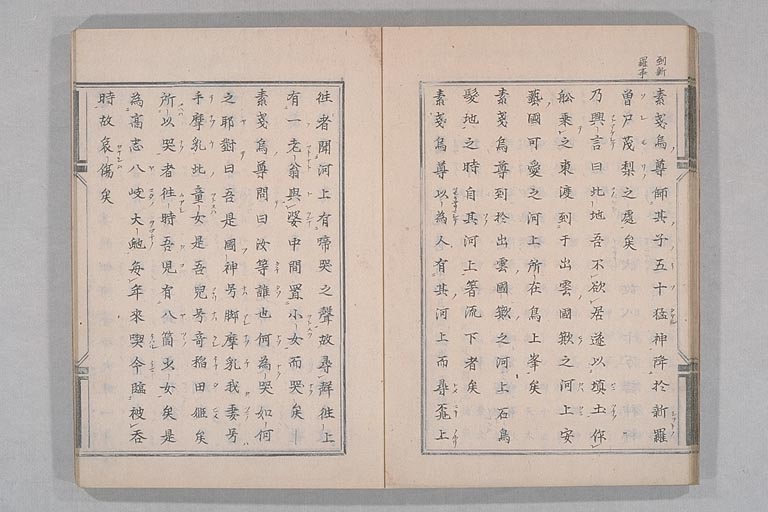 到新
羅事
素戔烏尊師其子五十猛神降於新羅
曽尸茂梨之處矣
乃興言曰此地吾不欲居遂以埴土作
舩乗之東渡到于出雲國簸之河上安
藝國可愛之河上所在鳥上峯矣
素戔烏尊到於出雲國簸之河上石鳥
髪地之時自其河上箸流下者矣
素戔烏尊以為人有其河上而尋覔上
徃者聞河上有啼哭之聲故尋聲徃上
有一老翁與婆中間置小女而哭矣
素戔烏尊問曰汝等誰也何為哭如何
之耶對曰吾是國神号脚摩乳我妻号
手摩乳此童女是吾兒号竒稲田姫矣
所以哭者徃時吾兒有八箇少女矣是
為高志八岐大虵毎年來喫今臨被呑
時故哀傷矣